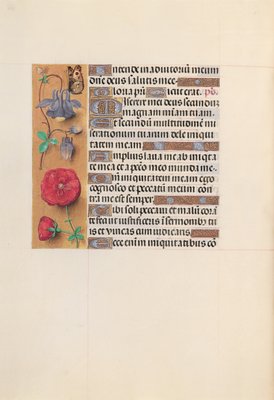 Intende in adiutorium meum
deus salutis mee
Gloria pri sicut erat. ps.
Miserere mei deus secundum
magnam miam tuam.
Et secundum multitudinem mi
serationum tuarum dele iniqui
tatem meam
Amplius laua me ab iniquita
te mea et a peccato meo munda me
iniquitatem meam ego
cognosco et peccatum meum con
tra me est semper
Tibi soli peccaui et malum cora
te feci ut iustificeris in sermonibus tu
is et vincas cum iudicaris
Ecce enim in iniquitatibus co